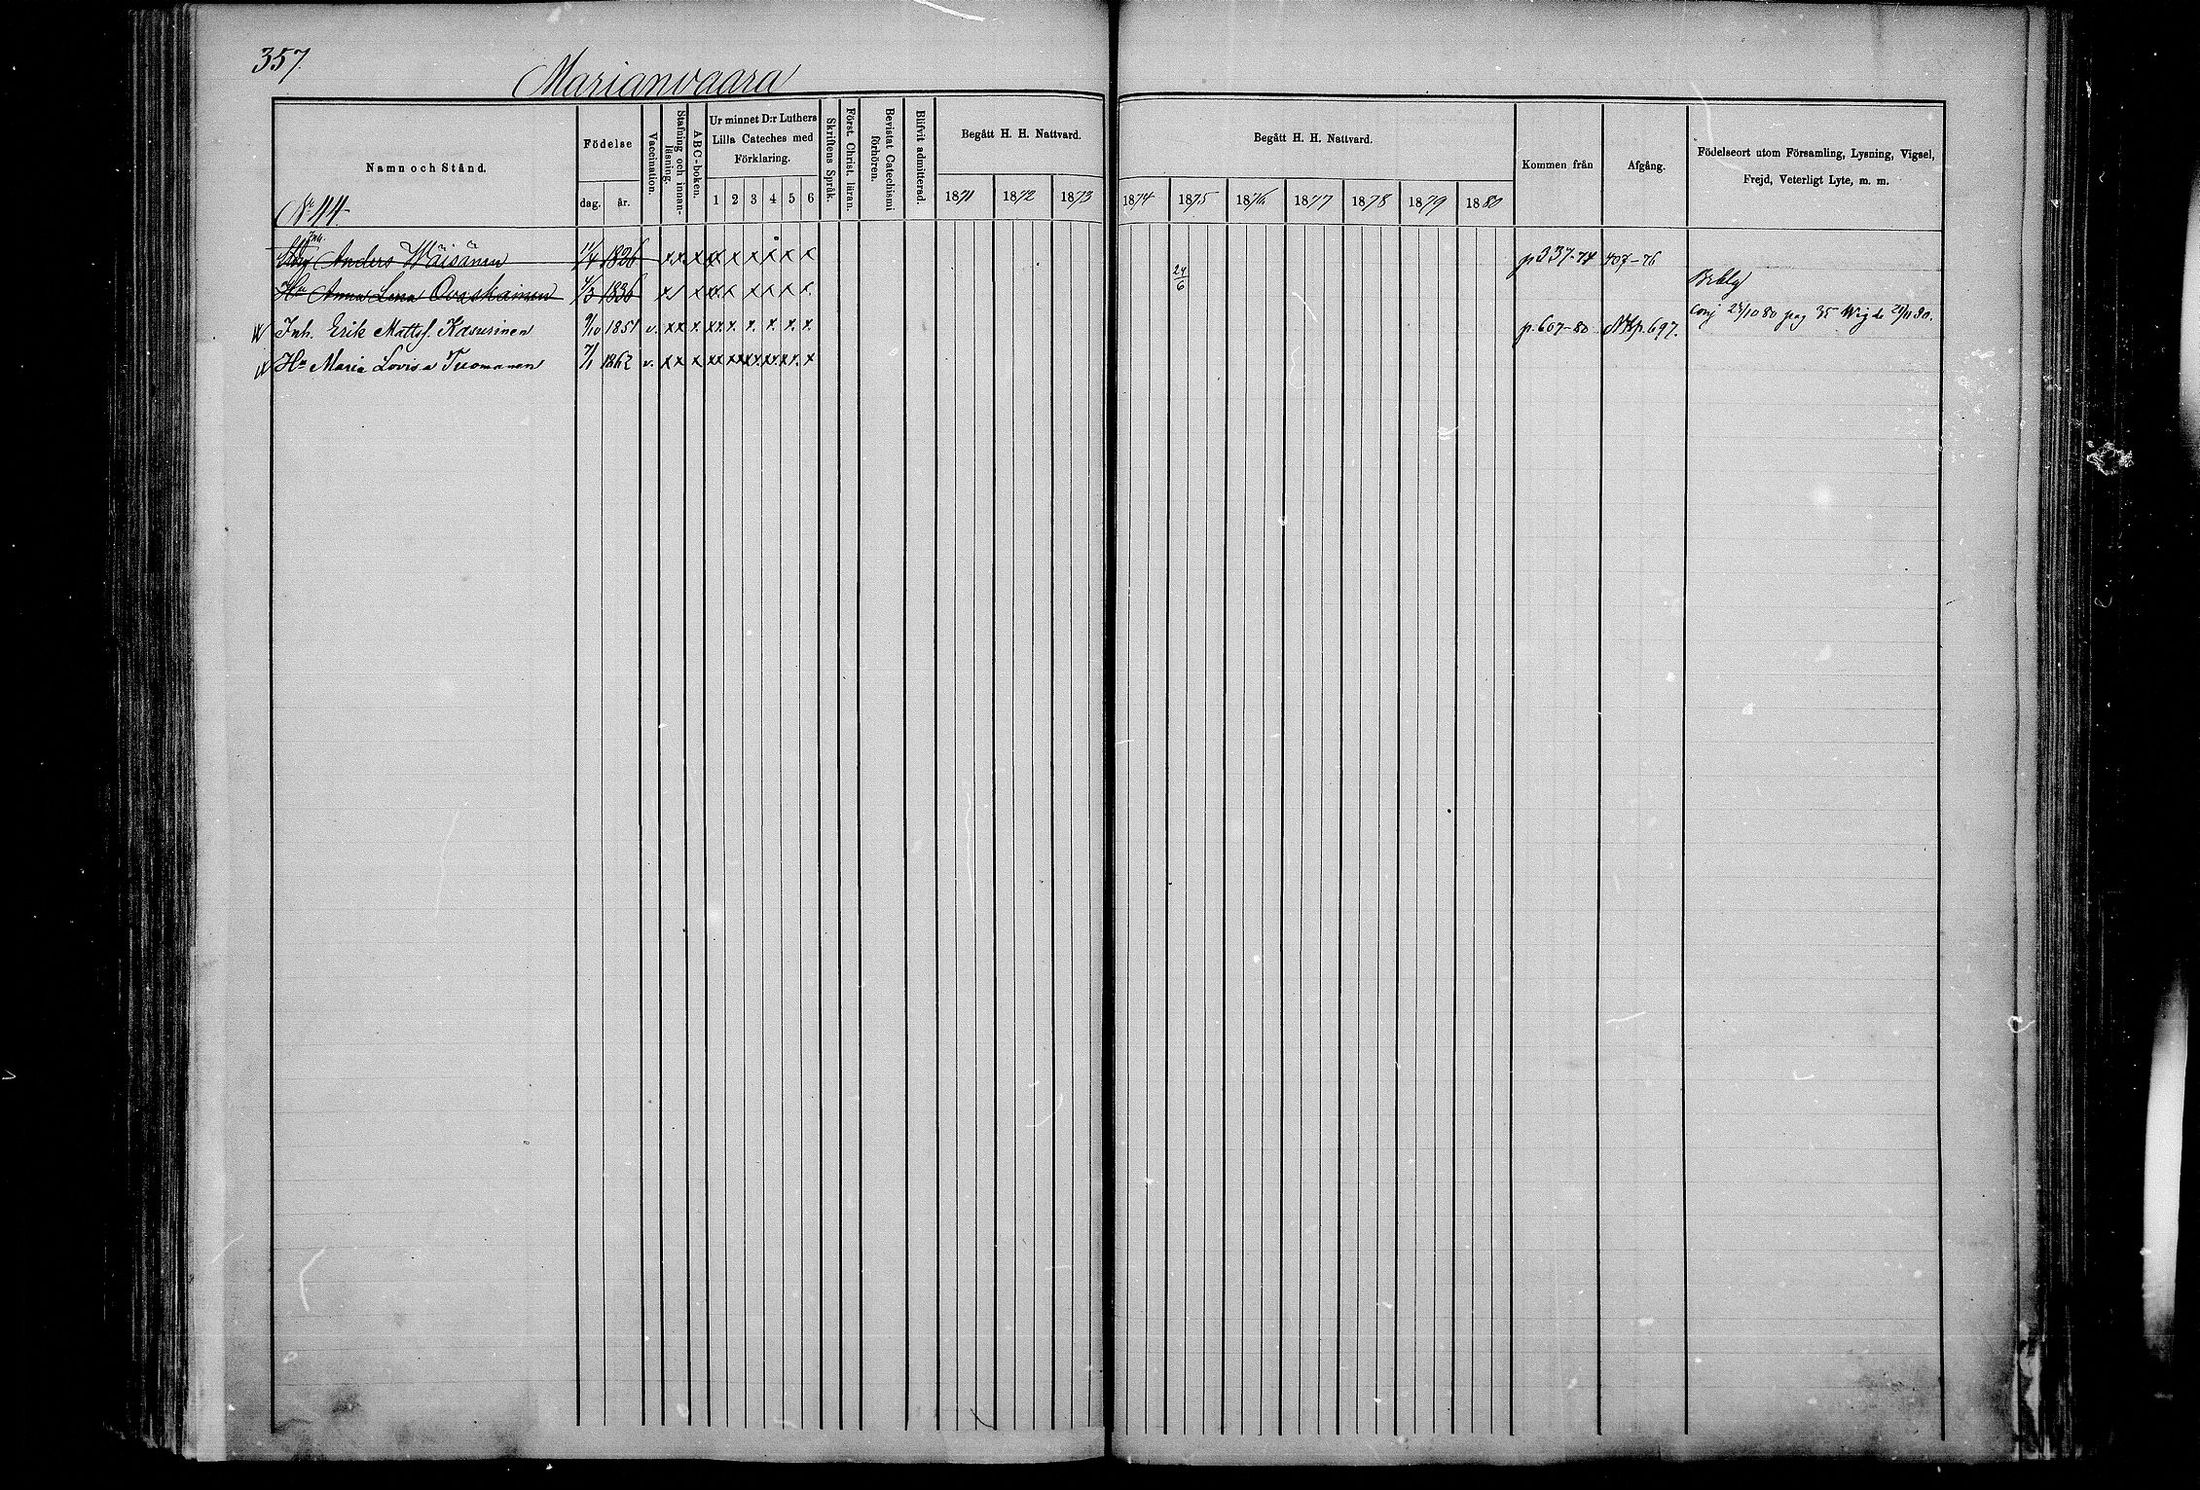 357
Marianvaara
Namn och Stånd.
Födelse
dag. år.
Vaccination.
Stafning och innanläsning.
ABC-boken.
Ur minnet D:r Luthers Lilla Cateches med Förklaring.
1 2 3 4 5 6
Skriftens Språk.
Först. Christ. läran.
Bevistat Catechismi förhören.
Blifvit admitterad.
Begått H. H. Nattvard.
1871 1872 1873
Begått H. H. Nattvard.
1874 1875 1876 1877 1878 1879 1880
Kommen från
Afgång.
Födelseort utom Församling, Lysning, Vigsel, Frejd, Veterligt Lyte, m. m.
No 44.
Inh.
Anders Wäisänen 1826 x x x x x x x x x p 337-74 407-76
24/6
Hu Anna Lena Ovaskainen 1836
Inh. Erik Mattss. Kasurinen 9/10 1851 v. p. 607-80 NKp. 697. Conj 24/10 80 pag 35 Wigde
Hu Maria Lovisa Tuomanen 7/1 1862 v.